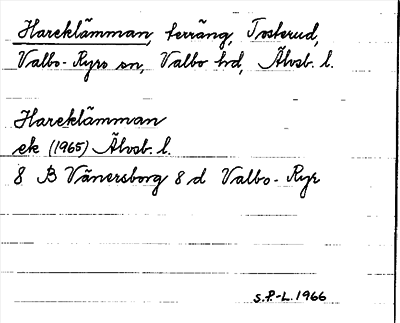 Hareklämman, terräng, Tosterud,
Valbo-Ryrs sn, Valbo hd, Älvsb. l.
Hareklämman
ek (1965) Älvsb. l.
8 B Vänersborg 8 d Valbo-Ryr
S.P.-L. 1966